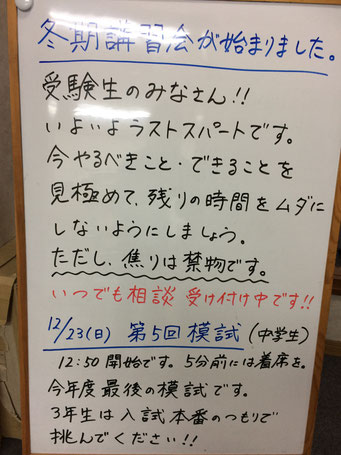 冬期講習会が始まりました。
受験生のみなさん!!
いよいよラストスパートです。
今やるべきこと・できることを
見極めて、残りの時間をムダに
しないようにしましょう。
ただし、焦りは禁物です。
いつでも相談 受け付け中です!!
12/23(日) 第5回 模試 (中学生)
12:50 開始です。5分前には着席を。
今年度最後の模試です。
3年生は入試本番のつもりで
挑んでください!!